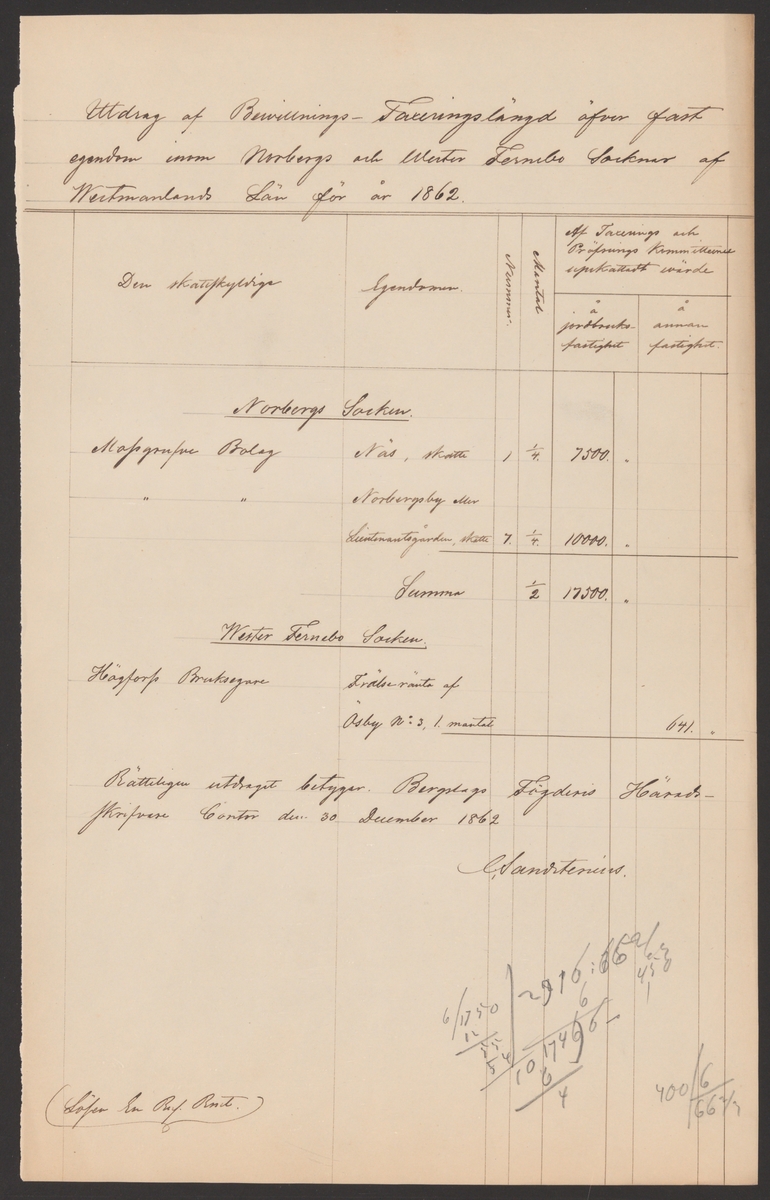 Utdrag af Bewillnings-Taxeringslängd öfver fast
egendom inom Norbergs och Wester Fernebo Socknar af
Westmanlands Län för år 1862.
Den skattskyldige
Egendomen.
Nummer.
Mantal
Af Taxerings och
Pröfnings Kommitteerne
uppskattadt wärde
å jordbruks-
fastighet
å annan
fastighet.
Norbergs Socken.
Mossgrufve Bolag Näs, skatte 1 1/4. 7500. "
" " Norbergsby eller
Lieutenantsgården, skatte 7. 1/4. 10000. "
Summa 1/2 17500. "
Wester Fernebo Socken.
Högfors Bruksegare Frälseränta af
Ösby No: 3, 1. mantal 641. "
Rätteligen utdraget betygar. Bergslags Fögderis Härads-
skrifvare Contor den 30 December 1862
C. Sandstenius.
2916:66 2/3
6/1750
12
400/6
66 2/3
(Lösen En Rd. Rmt.)